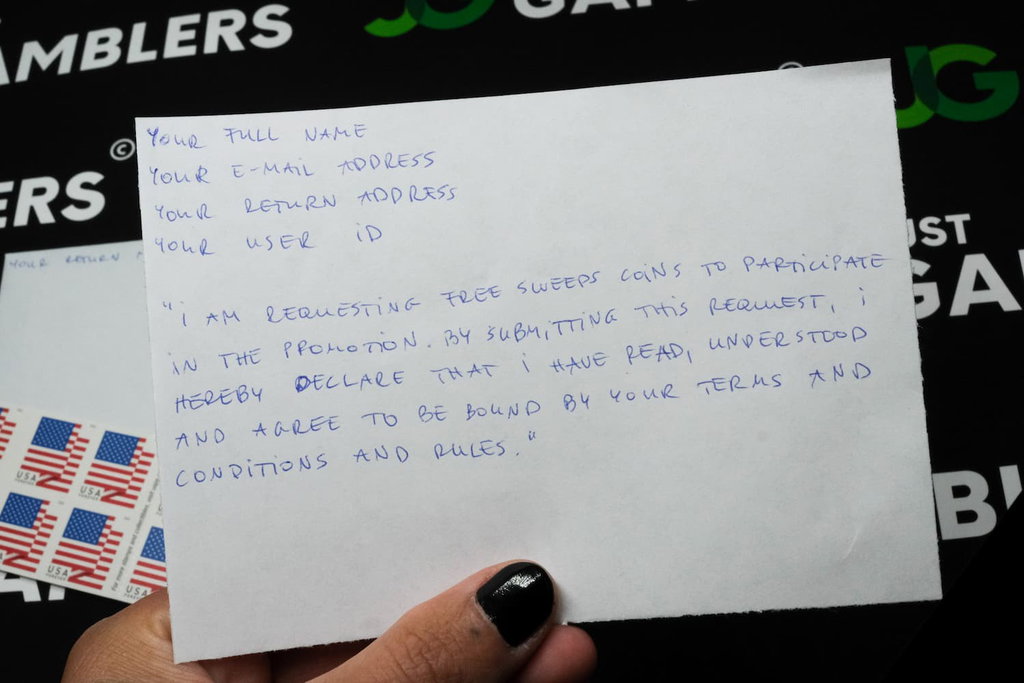 AMBLERS
JG
GAM
©
ERS
JG
UST
GA
BL
YOUR FULL NAME
YOUR E-MAIL ADDRESS
YOUR RETURN ADDRESS
YOUR USER ID
"I AM REQUESTING FREE SWEEPS COINS TO PARTICIPATE
IN THE PROMOTION. BY SUBMITTING THIS REQUEST, I
HEREBY DECLARE THAT I HAVE READ, UNDERSTOOD
AND AGREE TO BE BOUND BY YOUR TERMS AND
CONDITIONS AND RULES."
YOUR RETURN
USA
FOREVER
USA
FOREVER
USA
FOREVER
USA
FOREVER
USA